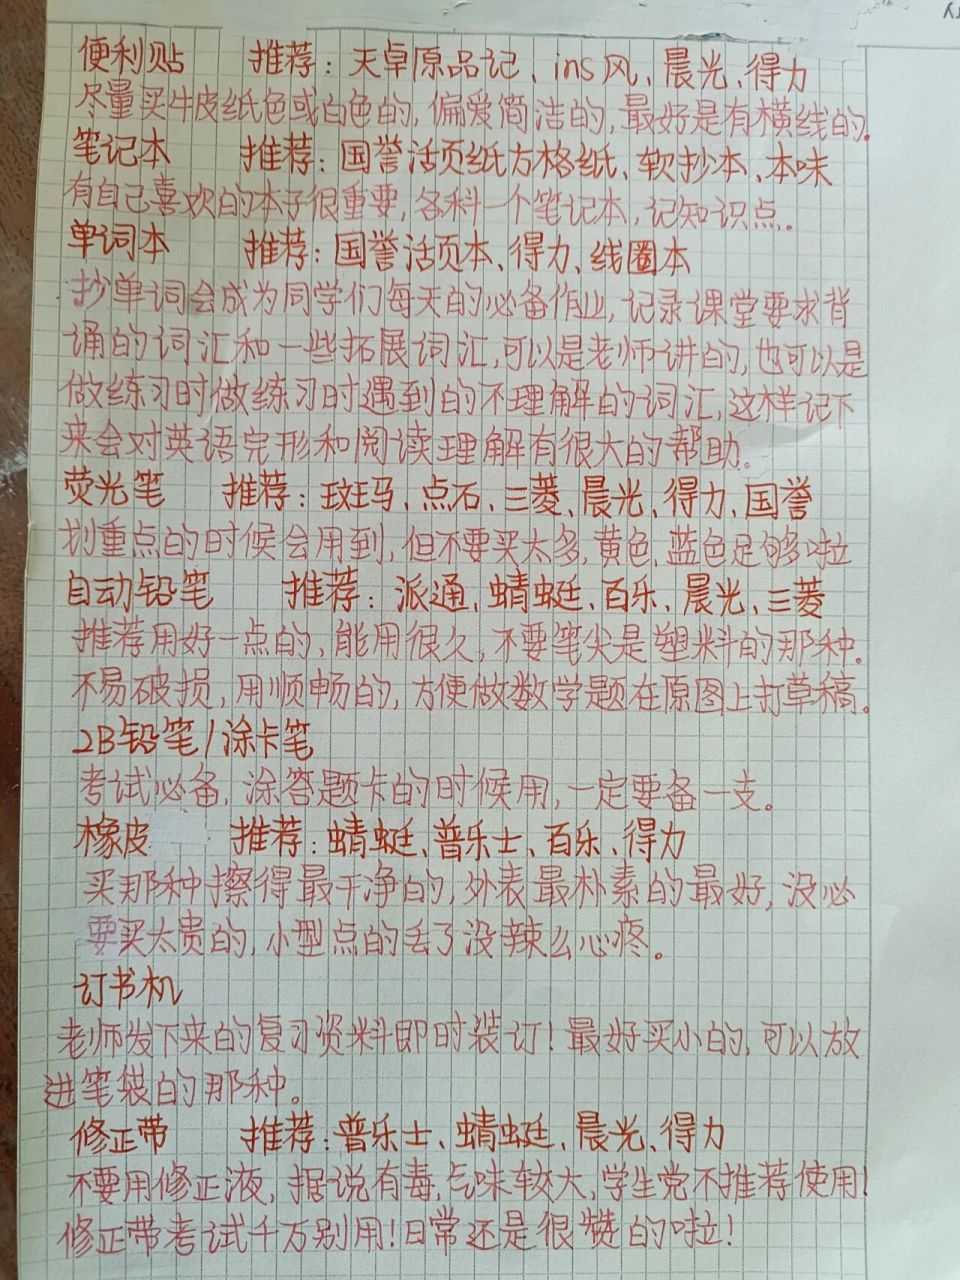 便利贴 推荐：天卓原品记、ins风、晨光、得力
尽量买牛皮纸色或白色的，偏爱简洁的，最好是有横线的。
笔记本 推荐：国誉活页纸方格纸、软抄本、本味
有自己喜欢的本子很重要，各科一个笔记本，记知识点。
单词本 推荐：国誉活页本、得力、线圈本
抄单词会成为同学们每天的必备作业，记录课堂要求背
诵的词汇和一些拓展词汇，可以是老师讲的，也可以是
做练习时做练习时遇到的不理解的词汇，这样记下
来会对英语完形和阅读理解有很大的帮助。
荧光笔 推荐：斑马、点石、三菱、晨光、得力、国誉
划重点的时候会用到，但不要买太多，黄色，蓝色足够啦
自动铅笔 推荐：派通、蜻蜓、百乐、晨光、三菱
推荐用好一点的，能用很久，不要笔尖是塑料的那种。
不易破损，用顺畅的，方便做数学题在原图上打草稿。
2B铅笔/涂卡笔
考试必备，涂答题卡的时候用，一定要备一支。
橡皮 推荐：蜻蜓、普乐士、百乐、得力
买那种擦得最干净的，外表最朴素的最好，没必
要买太贵的，小型点的丢了没辣么心疼。
订书机
老师发下来的复习资料即时装订！最好买小的，可以放
进笔袋的那种。
修正带 推荐：普乐士、蜻蜓、晨光、得力
不要用修正液，据说有毒，气味较大，学生党不推荐使用！
修正带考试千万别用！日常还是很赞的啦！